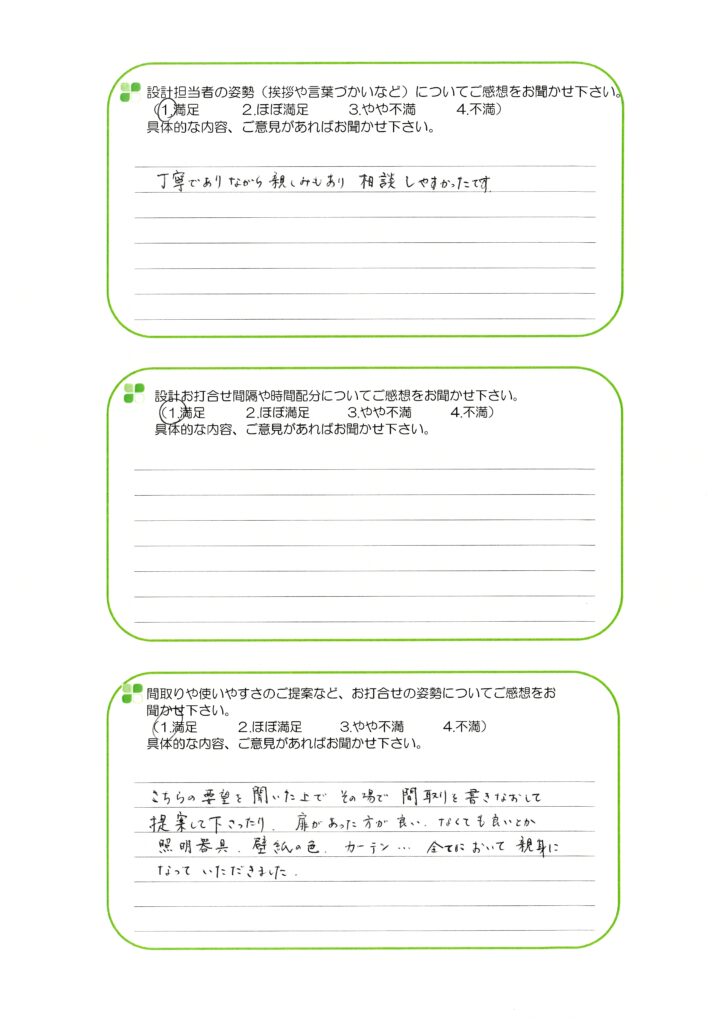 設計担当者の姿勢（挨拶や言葉づかいなど）についてご感想をお聞かせ下さい。
（1.満足　2.ほぼ満足　3.やや不満　4.不満）
具体的な内容、ご意見があればお聞かせ下さい。
丁寧でありながら親しみもあり 相談しやすかったです
設計お打合せ間隔や時間配分についてご感想をお聞かせ下さい。
（1.満足　2.ほぼ満足　3.やや不満　4.不満）
具体的な内容、ご意見があればお聞かせ下さい。
間取りや使いやすさのご提案など、お打合せの姿勢についてご感想をお
聞かせ下さい。
（1.満足　2.ほぼ満足　3.やや不満　4.不満）
具体的な内容、ご意見があればお聞かせ下さい。
こちらの要望を聞いた上で その場で 間取りを書きなおして
提案して下さったり、扉があった方が良い、なくても良いとか
照明器具、壁紙の色、カーテン… 全てにおいて 親身に
なって いただきました。